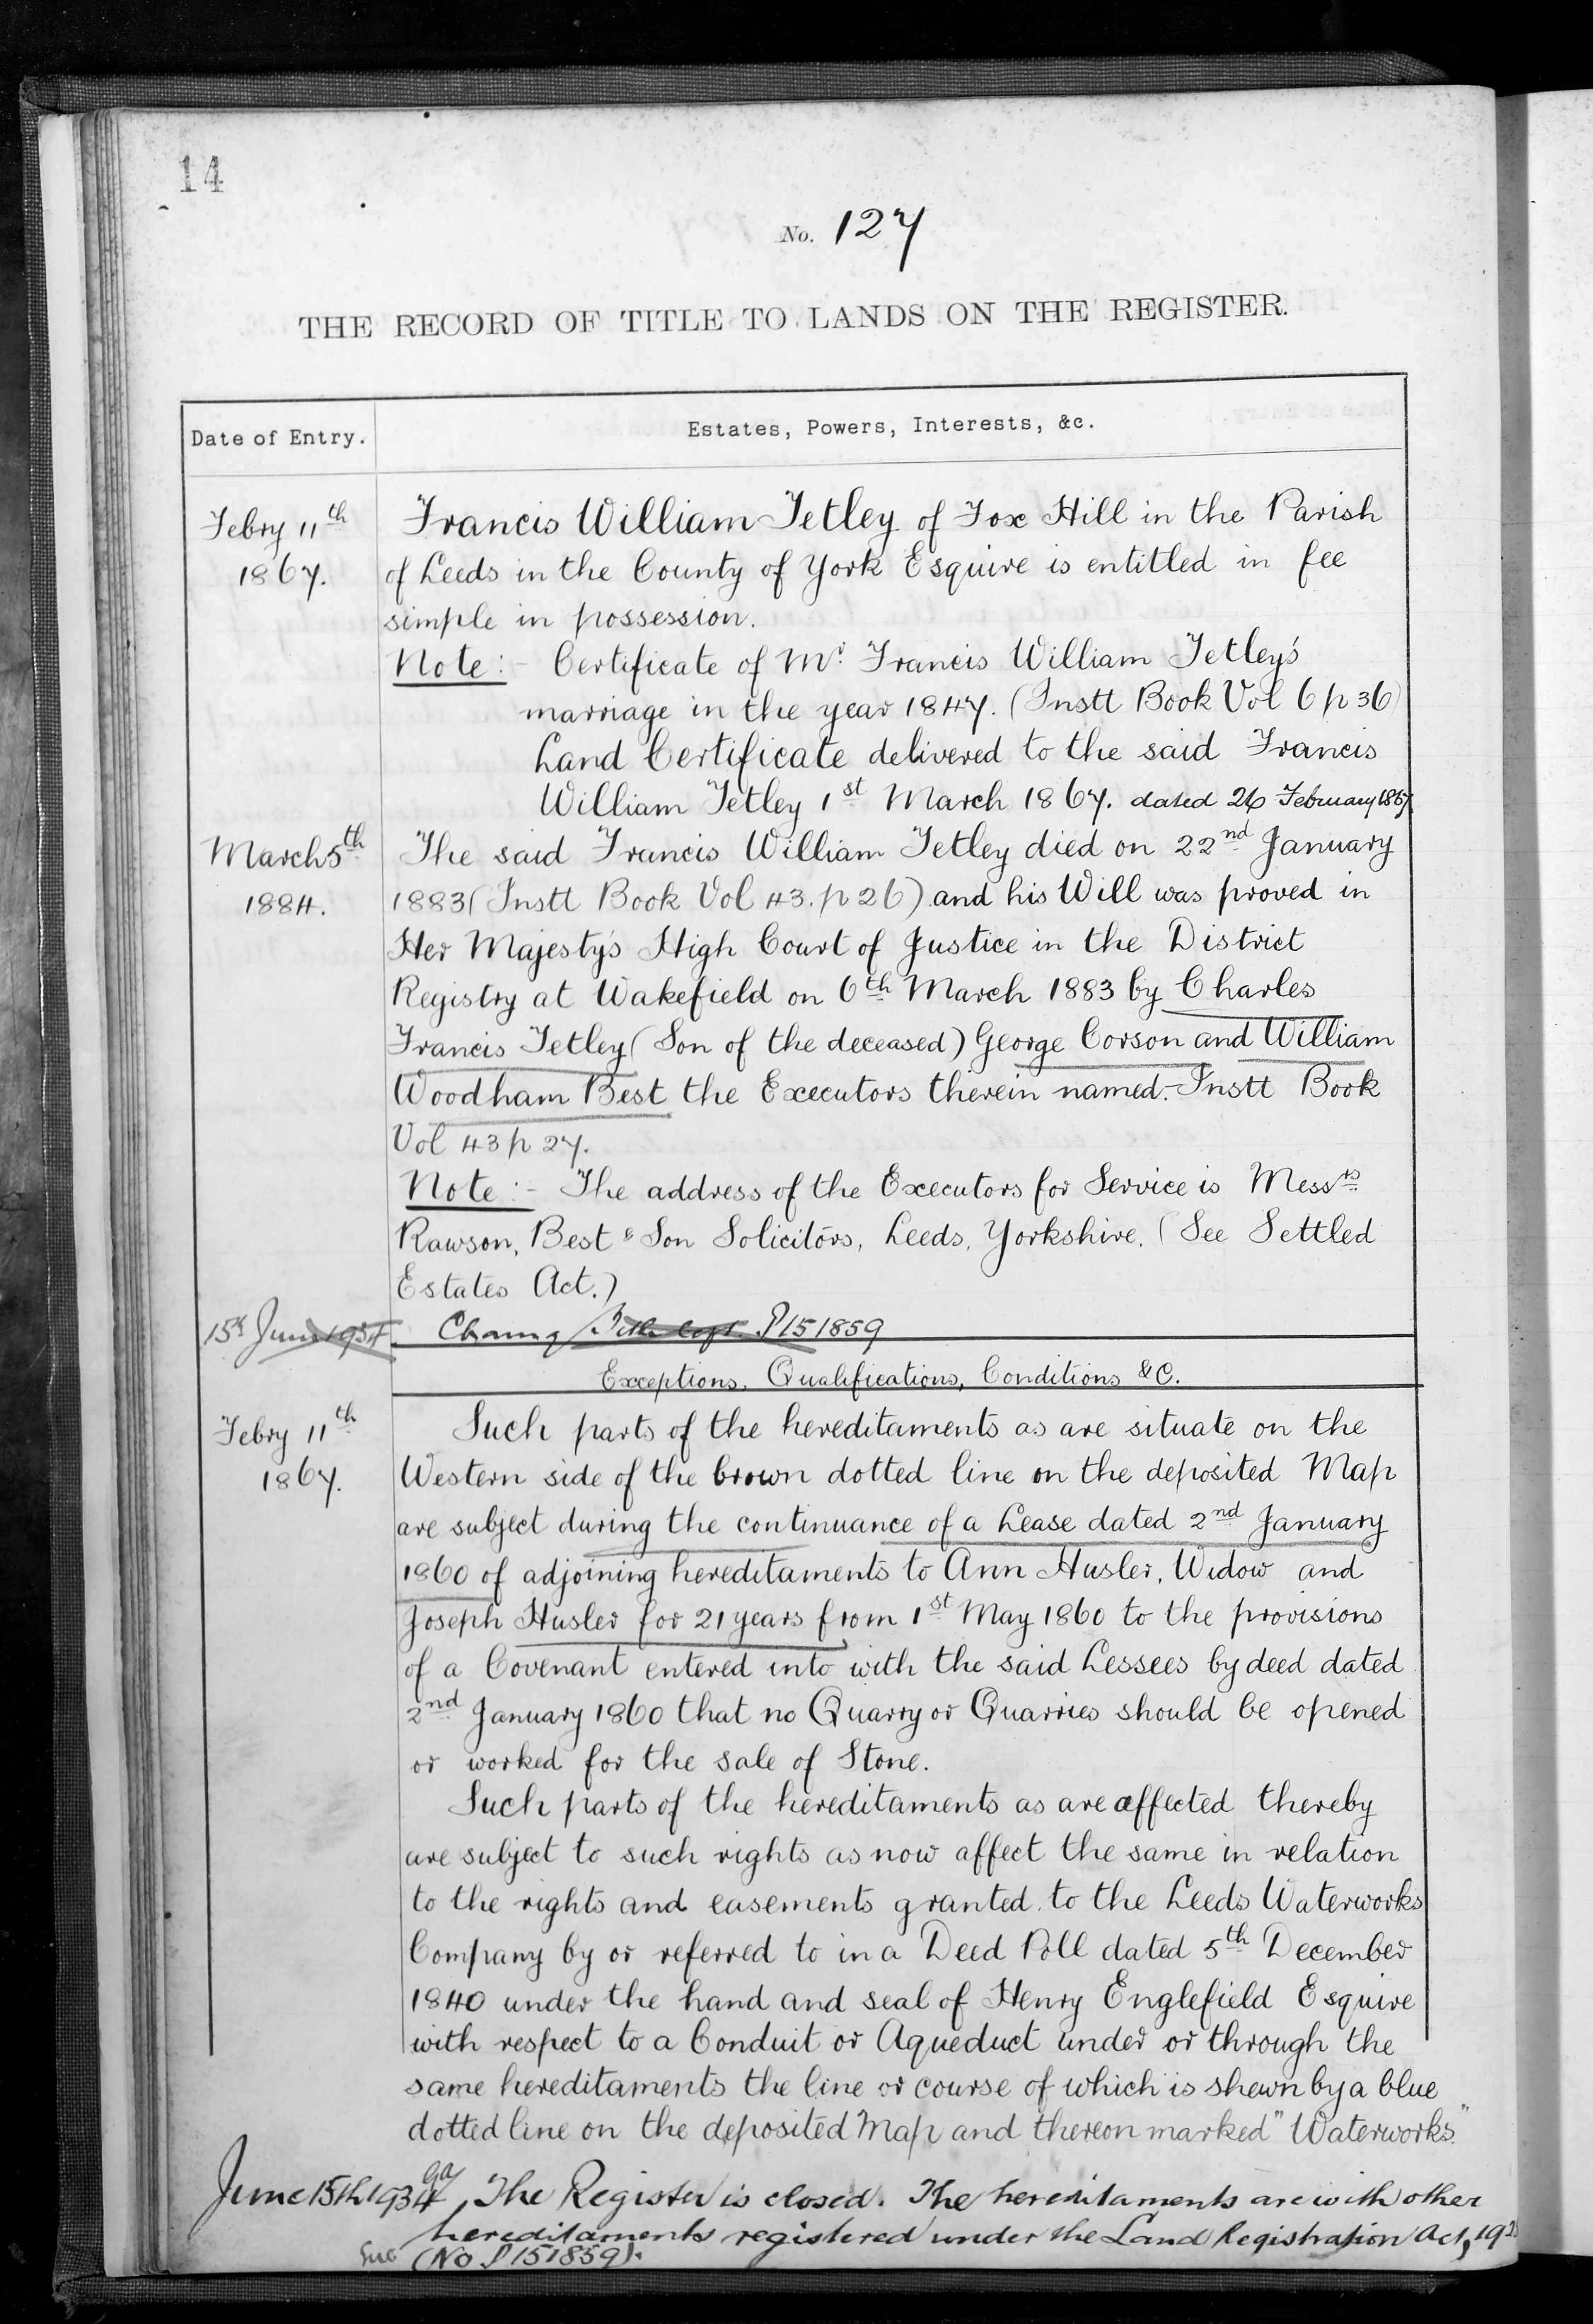 14
No. 127
THE RECORD OF TITLE TO LANDS ON THE REGISTER.
Date of Entry.
Estates, Powers, Interests, &c.
Febry 11th
1867.
Francis William Tetley of Fox Hill in the Parish
of Leeds in the County of York Esquire is entitled in fee
simple in possession.
Note:- Certificate of Mr. Francis William Tetley's
marriage in the year 1847. (Instt Book Vol 6 p 36)
Land Certificate delivered to the said Francis
William Tetley 1st March 1867. dated 26 February 1867
March 5th
1884.
The said Francis William Tetley died on 22nd January
1883 (Instt Book Vol 43. p 26) and his Will was proved in
Her Majesty's High Court of Justice in the District
Registry at Wakefield on 6th March 1883 by Charles
Francis Tetley (Son of the deceased) George Corson and William
Woodham Best the Executors therein named.- Instt Book
Vol 43 p 27.
Note:- The address of the Executors for Service is Messrs
Rawson, Best & Son Solicitors, Leeds, Yorkshire. (See Settled
Estates Act.)
15th June 1934 P151859
Exceptions, Qualifications, Conditions &C.
Febry 11th
1867.
Such parts of the hereditaments as are situate on the
Western side of the brown dotted line on the deposited Map
are subject during the continuance of a Lease dated 2nd January
1860 of adjoining hereditaments to Ann Husler, Widow and
Joseph Husler for 21 years from 1st May 1860 to the provisions
of a Covenant entered into with the said Lessees by deed dated
2nd January 1860 that no Quarry or Quarries should be opened
or worked for the sale of Stone.
Such parts of the hereditaments as are affected thereby
are subject to such rights as now affect the same in relation
to the rights and easements granted to the Leeds Waterworks
Company by or referred to in a Deed Poll dated 5th December
1840 under the hand and seal of Henry Englefield Esquire
with respect to a Conduit or Aqueduct under or through the
same hereditaments the line or course of which is shewn by a blue
dotted line on the deposited Map and thereon marked "Waterworks."
June 15th 1934 The Register is closed. The hereditaments are with other
hereditaments registered under the Land Registration Act, 19
(No P151859).